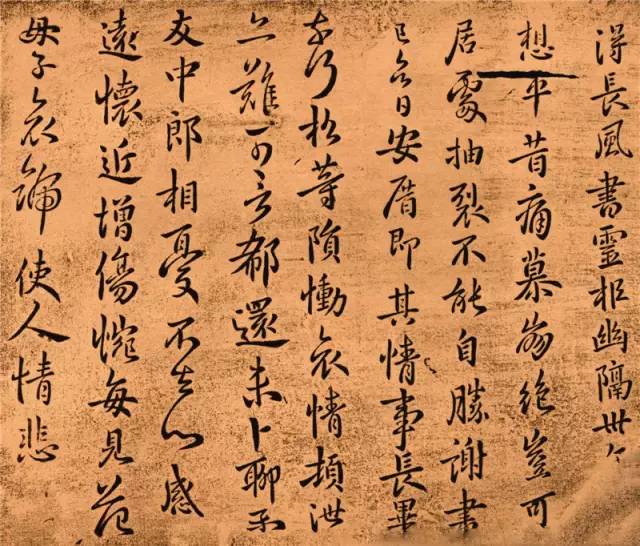 得長風書靈柩幽隔卅
想平昔痛慕崩絕豈可
居處抽裂不能自勝謝書
已 日安厝即其情事長畢
奈何松等隕慟哀情頓泄
亦難可言郗還未卜聊示
友中郎相憂不去心感
遠懷近增傷惋每見范
母子哀號使人情悲